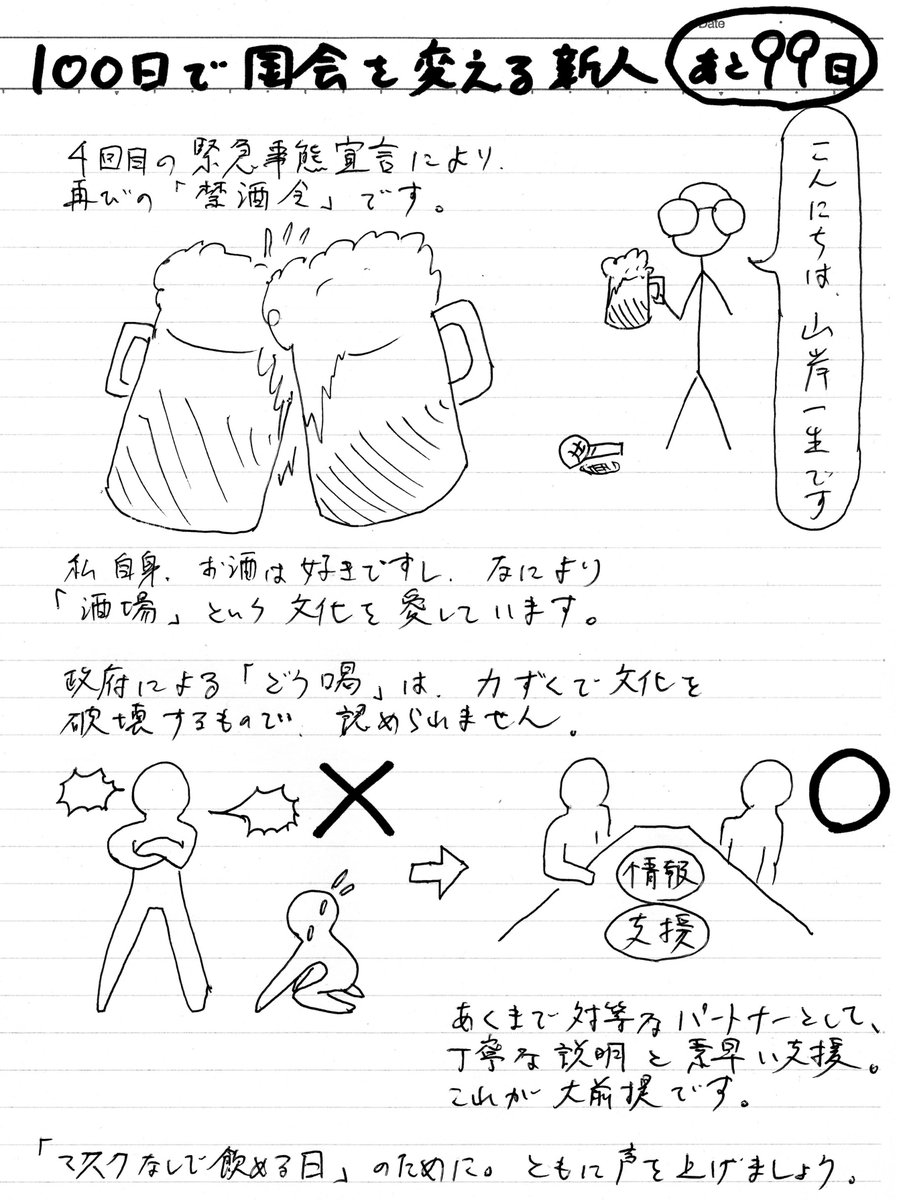 Date
100日で国会を変える新人 あと99日
4回目の緊急事態宣言により、
再びの「禁酒令」です。
こんにちは、山岸一生です
私自身、お酒は好きですし、なにより
「酒場」という文化を愛しています。
政府による「どう喝」は、力ずくで文化を
破壊するもので、認められません。
情報
支援
あくまで対等なパートナーとして、
丁寧な説明と素早い支援。
これが大前提です。
「マスクなしで飲める日」のために。ともに声を上げましょう。